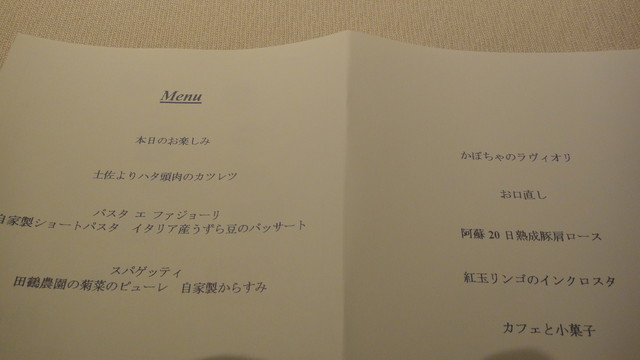 Menu
本日のお楽しみ
土佐よりハタ頭肉のカツレツ
パスタ エ ファジョーリ
自家製ショートパスタ　イタリア産うずら豆のパッサート
スパゲッティ
田鶴農園の菊菜のピューレ　自家製からすみ
かぼちゃのラヴィオリ
お口直し
阿蘇 20 日熟成豚肩ロース
紅玉リンゴのインクロスタ
カフェと小菓子